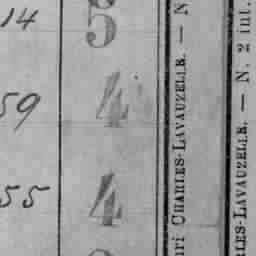 14 5
59 4
55 4
uri CHARLES-LAVAUZELLE. — N
RLES-LAVAUZELLE. — N. 2 int.